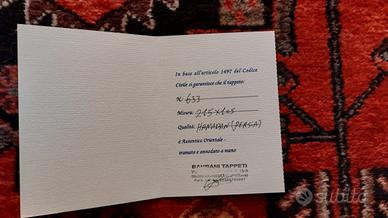 In base all'articolo 1497 del Codice
Civile si garantisce che il tappeto:
N. 633
Misura: 215x145
Qualità: HAMADAN (PERSIA)
è Autentico Orientale -
tramato e annodato a mano
BAHRAMI TAPPETI
subito